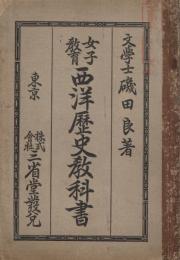 文學士磯田良著
女子教育西洋歷史教科書
東京株式會社三省堂發兌